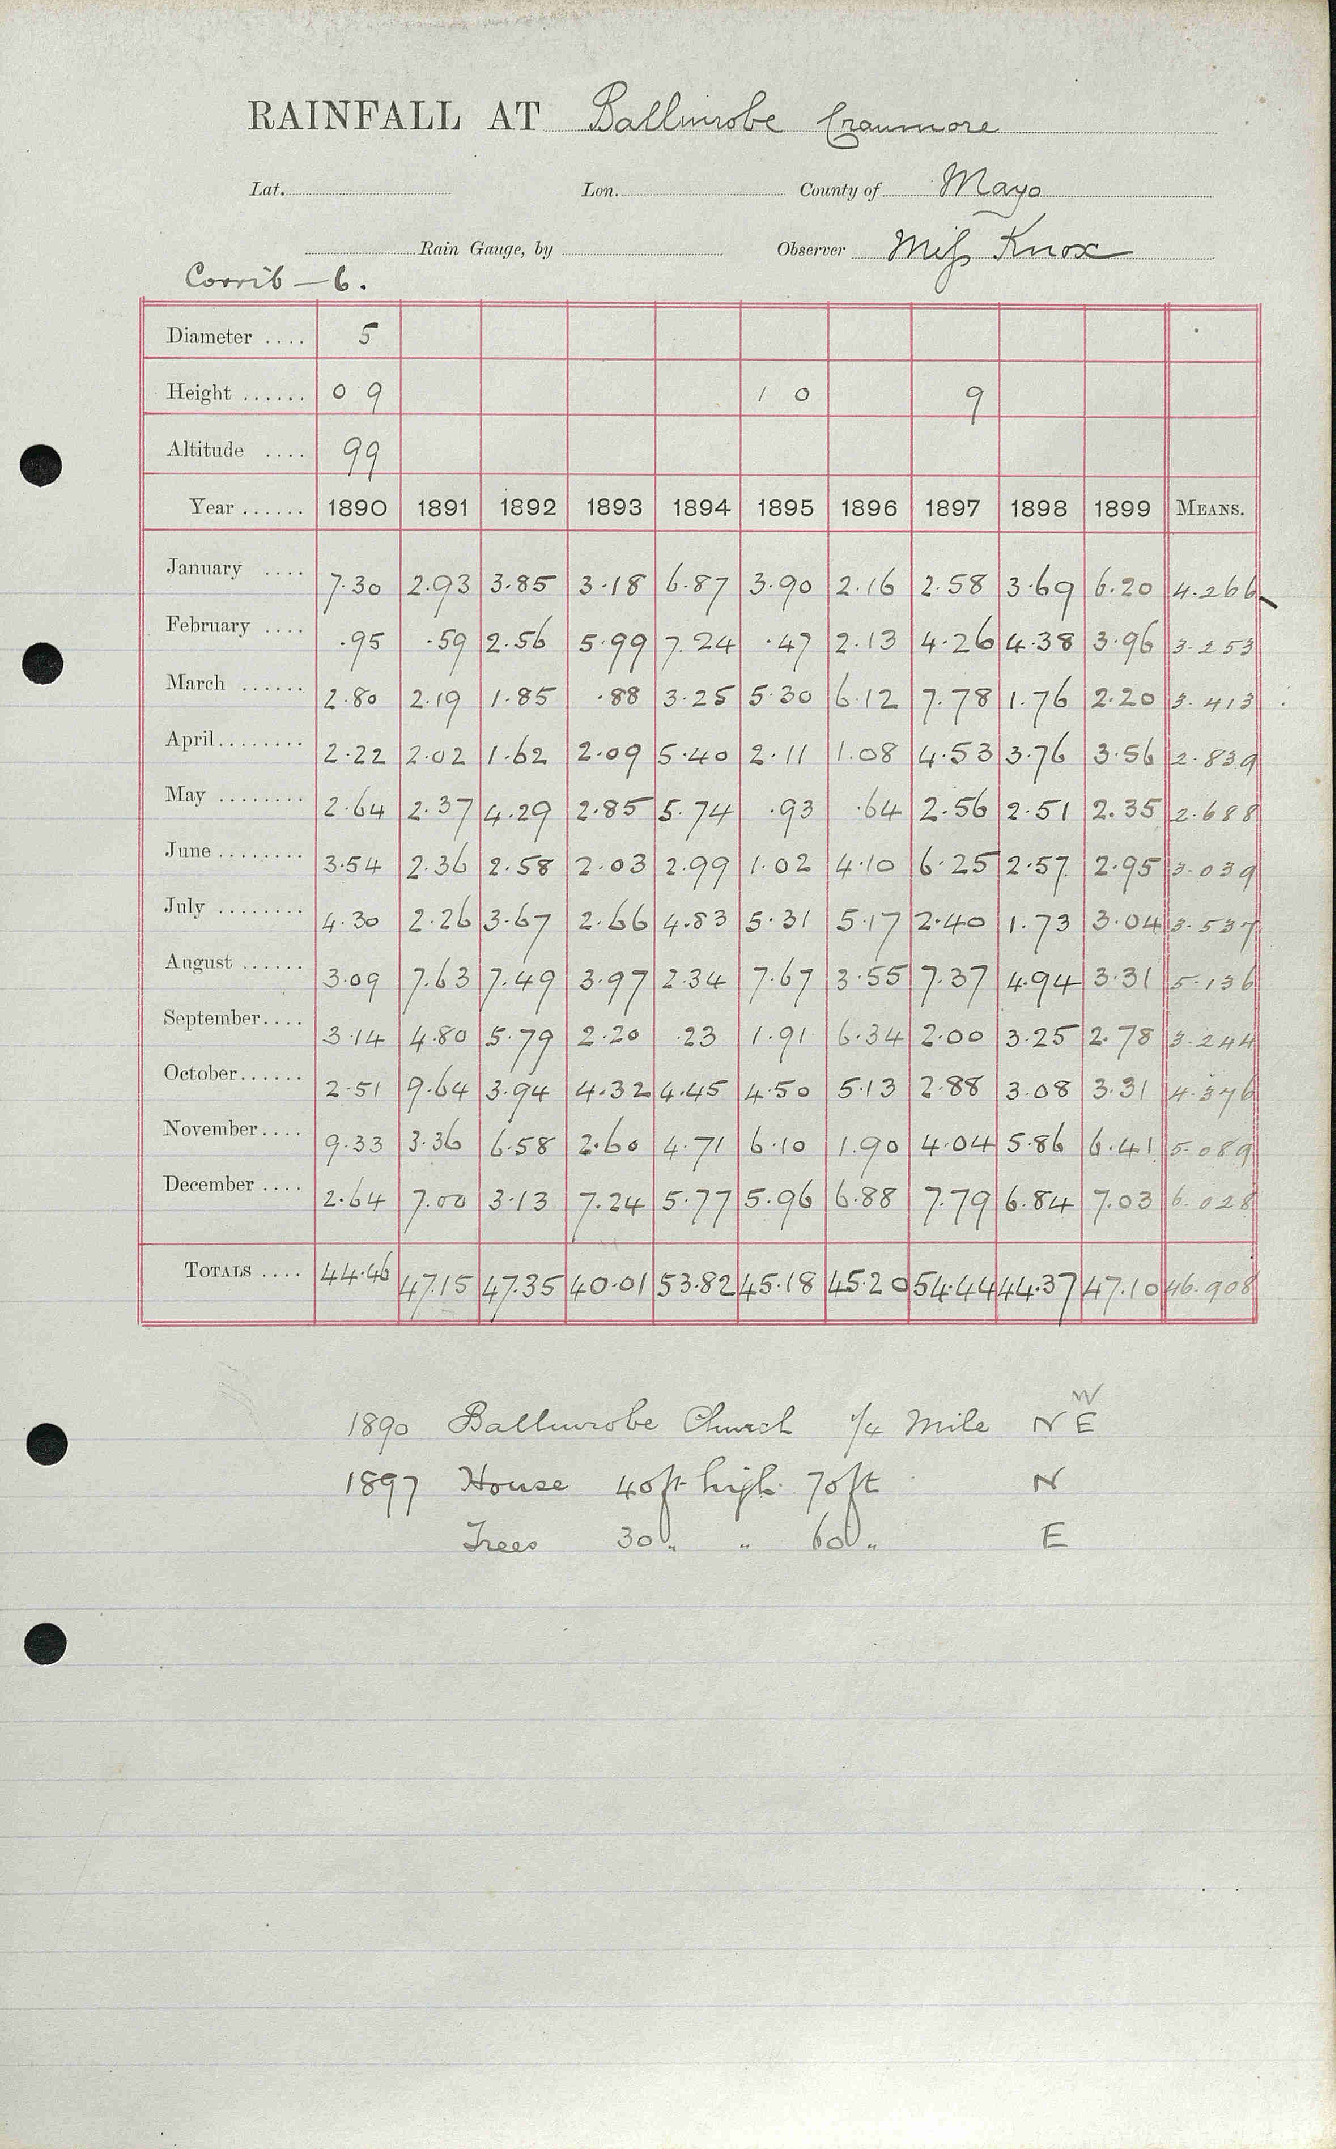 RAINFALL AT Ballinrobe Cranmore
Lat. Lon. County of Mayo
Rain Gauge, by Observer Miss Knox
Corrib – 6.
Diameter .... 5
Height ...... 0 9 1 0 9
Altitude .... 99
Year ...... 1890 1891 1892 1893 1894 1895 1896 1897 1898 1899 MEANS.
January .... 7.30 2.93 3.85 3.18 6.87 3.90 2.16 2.58 3.69 6.20 4.266
February .... .95 .59 2.56 5.99 7.24 .47 2.13 4.26 4.38 3.96 3.253
March ...... 2.80 2.19 1.85 .88 3.25 5.30 6.12 7.78 1.76 2.20 3.413
April........ 2.22 2.02 1.62 2.09 5.40 2.11 1.08 4.53 3.76 3.56 2.839
May ........ 2.64 2.37 4.29 2.85 5.74 .93 .64 2.56 2.51 2.35 2.688
June ........ 3.54 2.36 2.58 2.03 2.99 1.02 4.10 6.25 2.57 2.95 3.039
July ........ 4.30 2.26 3.67 2.66 4.83 5.31 5.17 2.40 1.73 3.04 3.537
August ...... 3.09 7.63 7.49 3.97 2.34 7.67 3.55 7.37 4.94 3.31 5.136
September.... 3.14 4.80 5.79 2.20 .23 1.91 6.34 2.00 3.25 2.78 3.244
October...... 2.51 9.64 3.94 4.32 4.45 4.50 5.13 2.88 3.08 3.31 4.376
November.... 9.33 3.36 6.58 2.60 4.71 6.10 1.90 4.04 5.86 6.41 5.089
December .... 2.64 7.00 3.13 7.24 5.77 5.96 6.88 7.79 6.84 7.03 6.028
TOTALS .... 44.46 47.15 47.35 40.01 53.82 45.18 45.20 54.44 44.37 47.10 46.908
W
1890 Ballinrobe Church 1/4 Mile N E
1897 House 40ft high 70ft N
Trees 30 „ „ 60 „ E